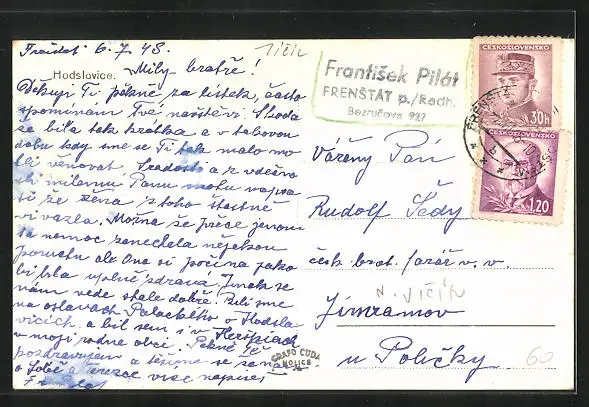 6. 7. 48.
Hodslavice.
Milý bratře!
Děkuji Ti pěkně za lístek, často
vzpomínám Tvé návštěvy. Škoda
že byla tak krátká a v takovou
dobu kdy sme se Ti tak málo mo-
hli věnovat. S radostí a z vděčno
stí milému Pánu mohu napsa
ti že žena z toho šťastně
vyvázla. Možná že přece jenom
ta nemoc zanechala nějakou
poruchu ale Ona si počíná jako
by byla úplně zdravá. Jinak se
nám vede stále dobře. Byli sme
na oslavách Palackého v Hodsla
vicích a byl sem i v Heršpicích
v mojí rodné obci. Pěkně Tě
pozdravujem a těšíme se že nám
o Sobě a více napíšeš
František Pilát
FRENŠTÁT p./Radh.
Bezručova 927
ČESKOSLOVENSKO
30h
ČESKOSLOVENSKO
1.20
Vážený Pan
Rudolf Šedý
česk. brat. farář v. v.
Jimramov
u Poličky
GRAFO ČUDA
HOLICE
60